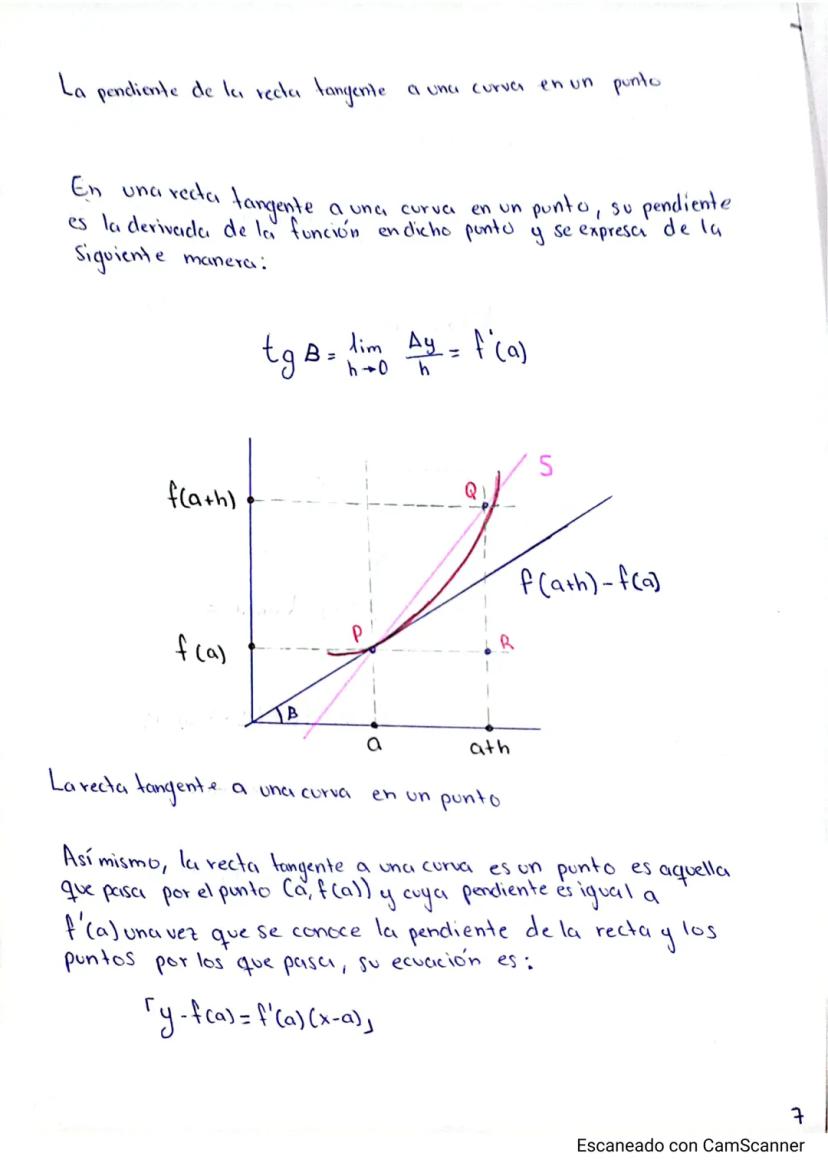 La pendiente de la recta tangente a una curva en un punto
En una recta tangente a una curva en un punto, su pendiente
es la derivada de la función en dicho punto y se expresa de la
Siguiente manera:
tg B = lim h→0 Δy/h = f'(a)
S
Q
f(a+h)
f(a+h)-f(a)
P
R
f(a)
B
a
a+h
La recta tangente a una curva en un punto
Así mismo, la recta tangente a una curva es un punto es aquella
que pasa por el punto (a, f(a)) y cuya pendiente es igual a
f'(a) una vez que se conoce la pendiente de la recta y los
puntos por los que pasa, su ecuación es:
「y-f(a)=f'(a)(x-a)」
7
Escaneado con CamScanner